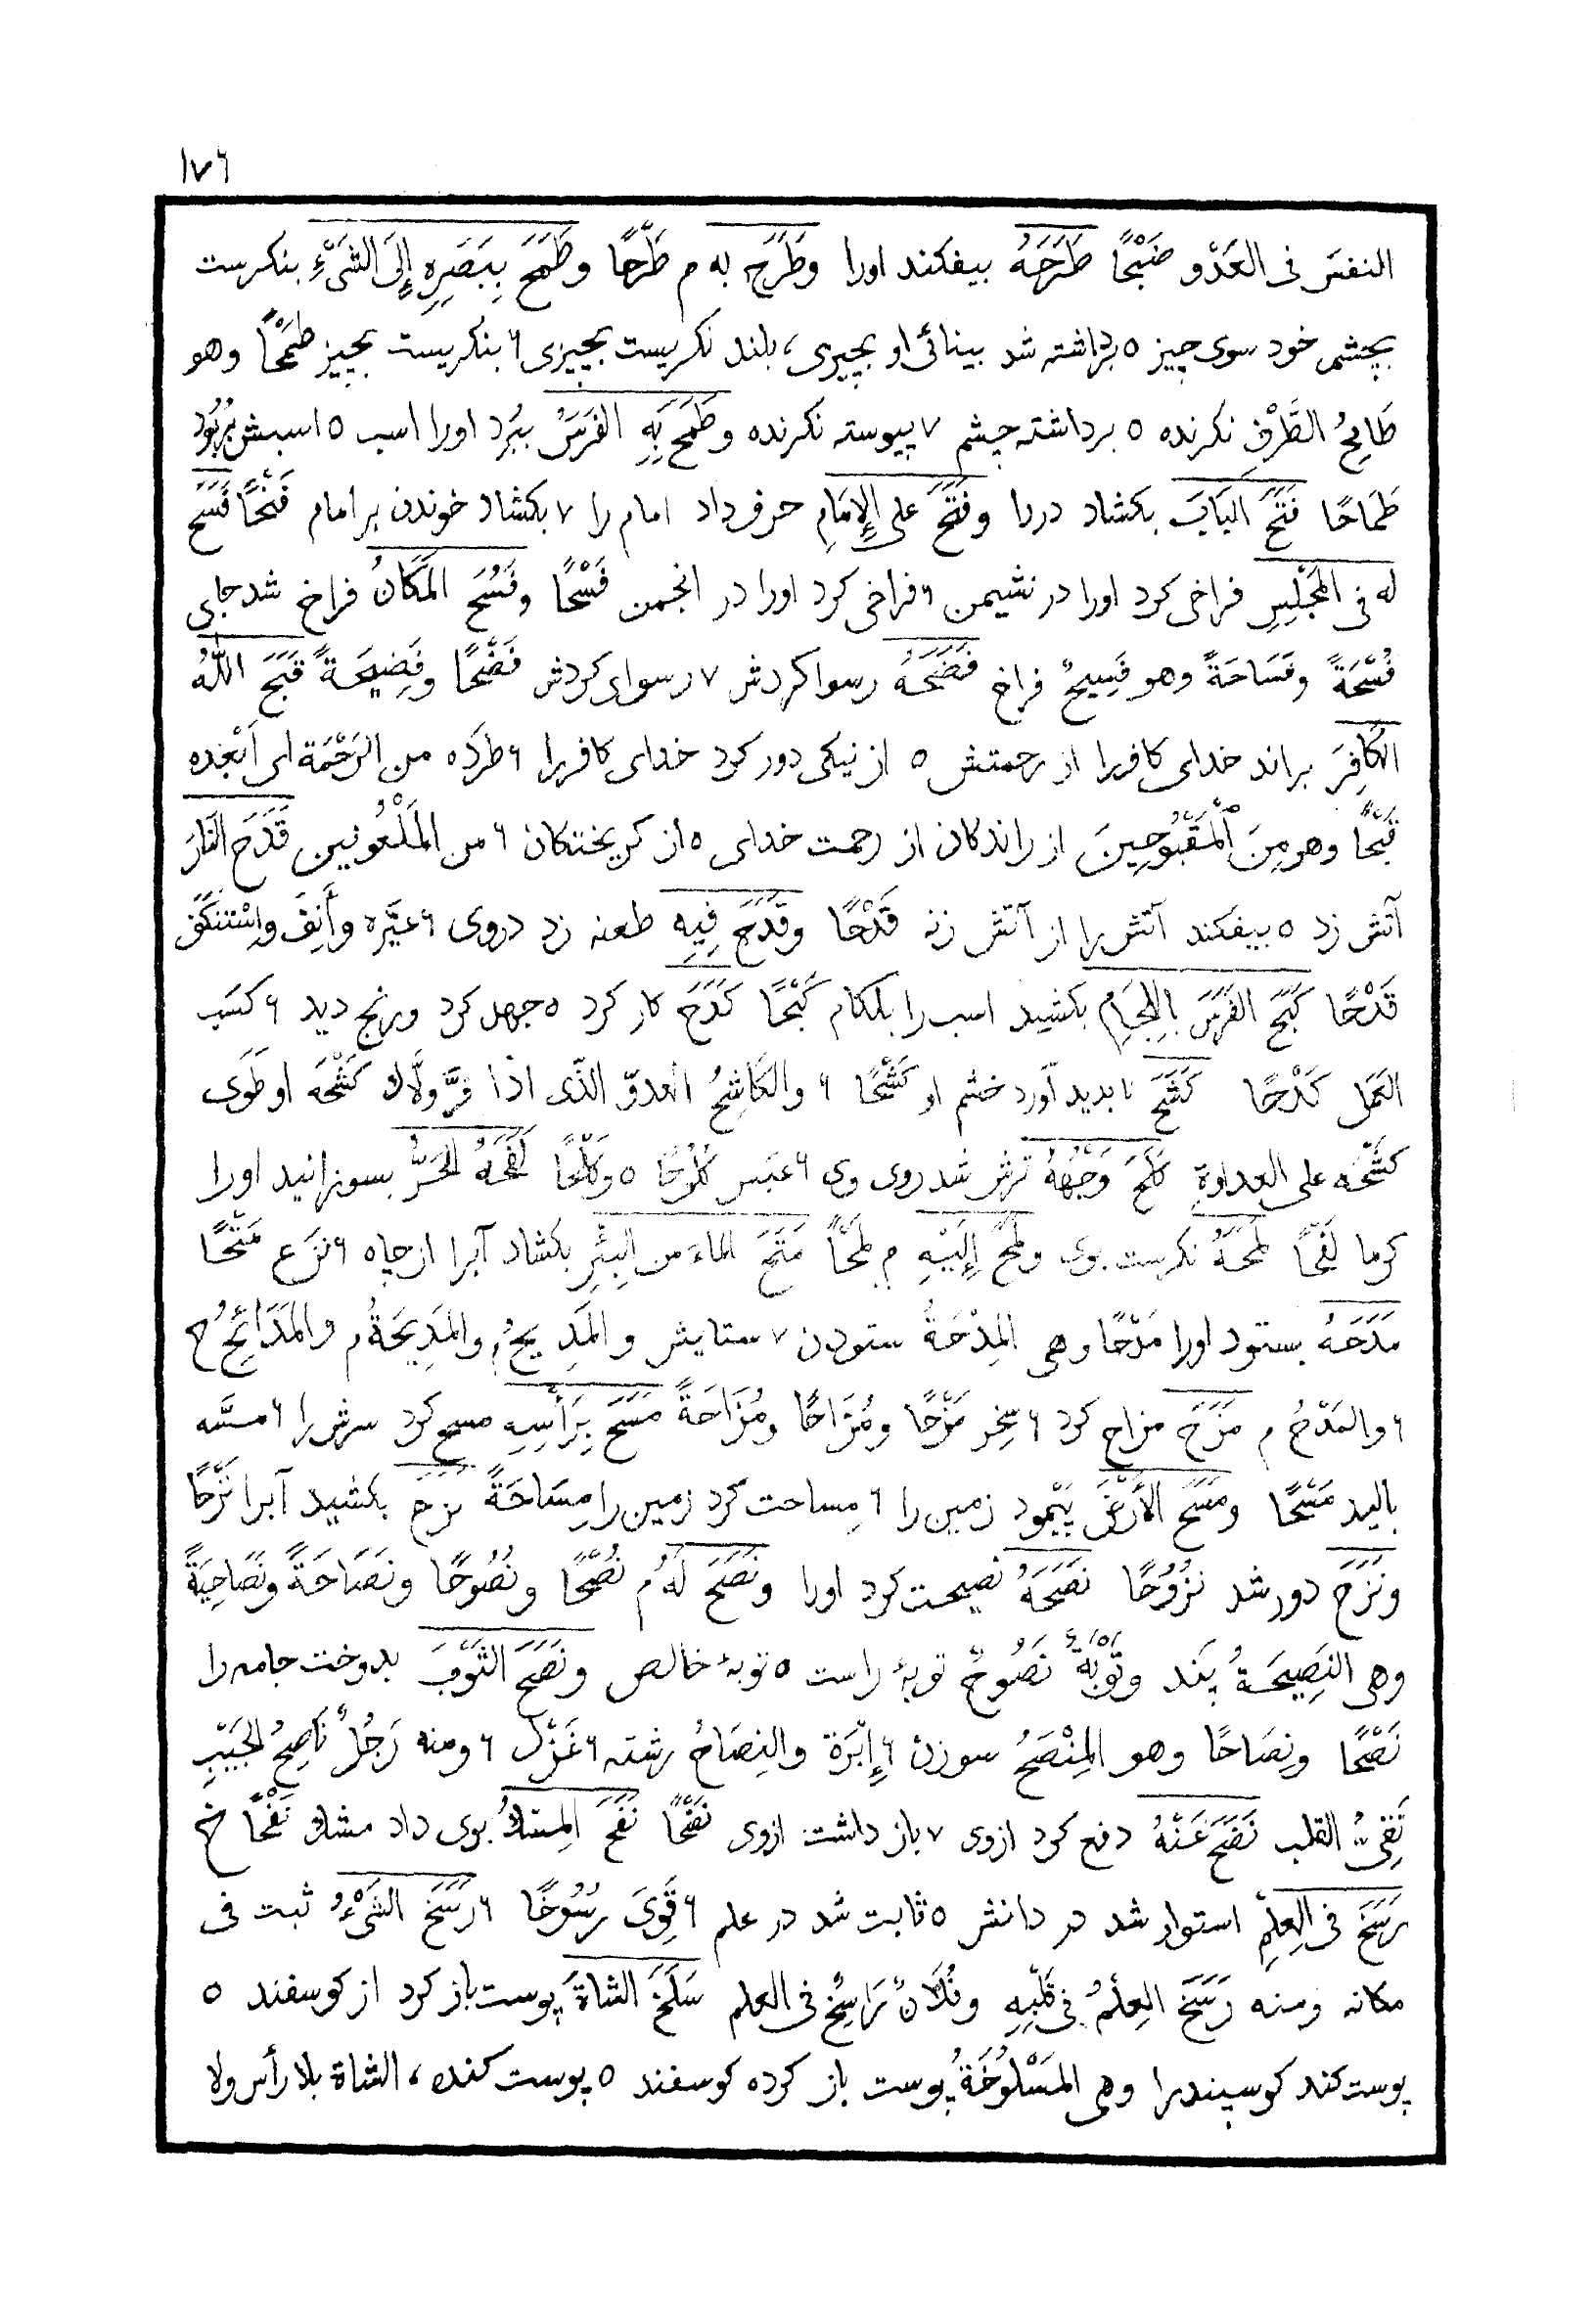 ١٧٦
النفس فی العَدْو ضَبْحًا طَرَحَهُ بیفکند اورا وطَرَحَ به م طَرْحًا وطَمَحَ بِبَصَرِهِ إِلَى الشَیْءِ بنکرست
بچشم خود سوی چیز ٥ برداشته شد بینائی او بچیزی، بلند نکریست بچیزی ٦ بنکریست بچیز طَمْحًا وهو
طَامِحُ الطَّرْفِ نکرنده ٥ برداشته چشم ٧ پیوسته نکرنده وطَمَحَ بِهِ الفَرَسُ ببُرد اورا اسب ٥ اسبش بُرْبُود
طَمَاحًا فَتَحَ البَابَ بکشاد دررا وفَتَحَ علی الإِمَامِ حرف داد امام را ٧ بکشاد خوندن بر امام فَتْحًا فَسَحَ
له فی المَجْلِسِ فراخی کرد اورا در نشیمن ٦ فراخی کرد اورا در انجمن فَسْحًا وفَسُحَ المَکَانُ فراخ شد جای
فُسْحَةً وفَسَاحَةً وهو فَسِیحٌ فراخ فَضَحَهُ رسوا کردش ٧ رسوای کردش فَضْحًا وفَضِیحَةً قَبَحَ اللّٰهُ
الکَافِرَ براند خدای کافررا از رحمتش ٥ از نیکی دور کرد خدای کافررا ٦ طرده من الرَحْمَة ای اَبْعَده
قَبْحًا وهو مِنَ الْمَقْبُوحِینَ از راندکان از رحمت خدای ٥ از کریختکان ٦ من المَلْعُونین قَدَحَ النَارَ
آتش زد ٥ بیفکند آتش را از آتش زنه قَدْحًا وقَدَحَ فِیهِ طعنه زد دروی ٦ عَیَّره وأَنِفَ واِسْتَنْکَفَ
قَدْحًا کَبَحَ الفَرَسَ بِاللِجَامِ بکشید اسب را بلکام کَبْحًا کَدَحَ کار کرد ٥ جهد کرد ورنج دید ٦ کَسَب
العَمَل کَدْحًا کَشَحَ نابدید آورد خشم او کَشْحًا ٦ والکَاشِحُ العدوّ الذّی اذا فَرَّ ولّاك کَشْحَه او طَوَی
کَشْحَه علی العداوةِ کَلَحَ وَجْهُهُ ترش شد روی وی ٦ عبَس کُلُوحًا ٥ وکَلْحًا لَفَحَهُ الحَرُّ بسوزانید اورا
کرما لَفْحًا لَمَحَهُ نکرست بوی ولَمَحَ إِلَیْهِ م لَمْحًا مَتَحَ الماءَ من البِئْرِ بکشاد آبرا از چاه ٦ نَزَع مَتْحًا
مَدَحَهُ بستود اورا مَدْحًا وهی المِدْحَةُ ستودن ٧ ستایش والمَدِیحُ م والمَدِیحَةُ م والمَدَائِحُ ج
٦ والمَدْحُ م مَزَحَ مزاح کرد ٦ سَخِر مَزْحًا ومُزَاحًا ومُزَاحَةً مَسَحَ بِرَأْسِهِ مسح کرد سرش را ٦ مسَّه
بالید مَسْحًا ومَسَحَ الأَرْضَ پَیْمود زمین را ٦ مِساحت کرد زمین را مِسَاحَةً نزح بکشید آبرا نَزْحًا
ونَزَحَ دور شد نُزُوحًا نَصَحَهُ نصیحت کرد اورا ونَصَحَ لَهُ م نُصْحًا ونُصُوحًا ونَصَاحَةً ونَصَاحِیَةً
وهی النَصِیحَةُ پند وتَوْبَةٌ نَصُوحٌ توبهٔ راست ٥ توبهٔ خالص ونَصَحَ الثَوْبَ بدوخت جامه را
نَصْحًا ونِصَاحًا وهو المِنْصَحُ سوزن ٦ إِبْرَة والنِصَاحُ رشته ٦ غَزْل ٦ ومنه رَجُلٌ نَاصِحُ الجَیْبِ
نَقِیُّ القلب نَضَحَ عَنْهُ دفع کرد ازوی ٧ باز داشت ازوی نَضْحًا نَفَحَ المِسْكُ بوی داد مشك نَفْحًا خ
رَسَخَ فی العِلْمِ استوار شد در دانش ٥ ثابت شد در علم ٦ قَوِیَ رُسُوخًا ٦ رَسَخَ الشَیْءُ ثبت فی
مکانه ومنه رَسَخَ العِلْمُ فی قَلْبِهِ وفُلَانٌ رَاسِخٌ فی العلم سَلَخَ الشاةَ پوست باز کرد از کوسفند ٥
پوست کند کوسپندرا وهی المَسْلُوخَةُ پوست باز کرده کوسفند ٥ پوست کنده، الشاة بلا رأس ولا